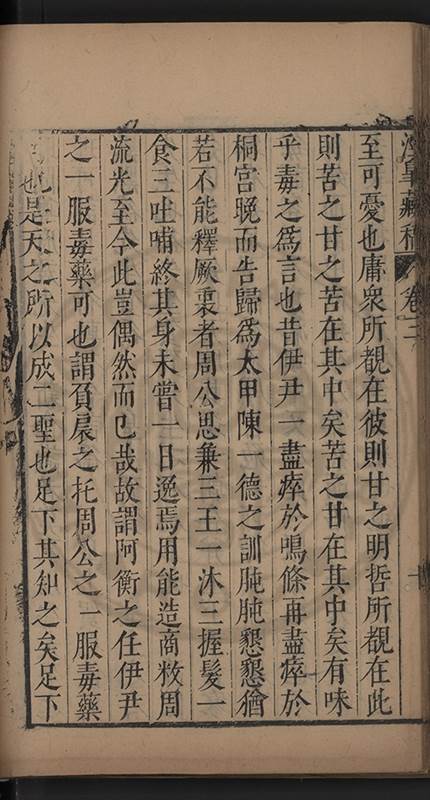 涇皋藏稿 卷三
至可憂也庸衆所覩在彼則甘之明哲所覩在此
則苦之甘之苦在其中矣苦之甘在其中矣有味
乎毒之爲言也昔伊尹一盡瘁於鳴條再盡瘁於
桐宮晚而告歸爲太甲陳一德之訓肫肫懇懇猶
若不能釋厥衷者周公思兼三王一沐三握髮一
食三吐哺終其身未嘗一日逸焉用能造商敉周
流光至今此豈偶然而已哉故謂阿衡之任伊尹
之一服毒藥可也謂負扆之托周公之一服毒藥
也是天之所以成二聖也足下其知之矣足下